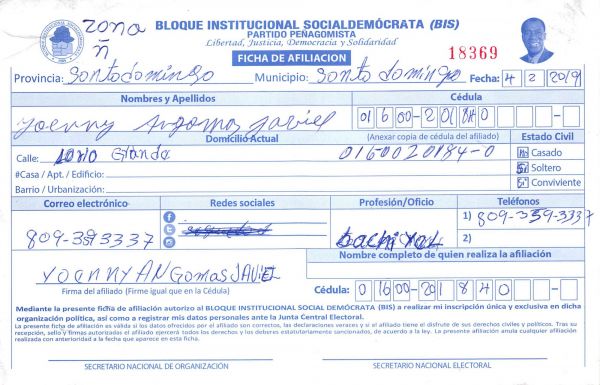 zona
ñ
BLOQUE INSTITUCIONAL SOCIALDEMÓCRATA (BIS)
PARTIDO PEÑAGOMISTA
Libertad, Justicia, Democracia y Solidaridad
FICHA DE AFILIACION
18369
Provincia: Santodomingo Municipio: Santo domingo Fecha: 4 2 2019
Nombres y Apellidos Cédula
Yoenny Angomas Javiel 01600-201840-
Domicilio Actual (Anexar copia de cédula del afiliado) Estado Civil
Calle: Grande 0160020184-0 Casado
#Casa / Apt. / Edificio: Soltero
Barrio / Urbanización: Conviviente
Correo electrónico Redes sociales Profesión/Oficio Teléfonos
1) 809-359-3337
809-3593337 2)
Nombre completo de quien realiza la afiliación
YOENNY ANGomas JAViEL
Firma del afiliado (Firme igual que en la Cédula) Cédula: 01600-201840-
Mediante la presente ficha de afiliación autorizo al BLOQUE INSTITUCIONAL SOCIAL DEMÓCRATA (BIS) a realizar mi inscripción única y exclusiva en dicha
organización política, así como a registrar mis datos personales ante la Junta Central Electoral.
La presente ficha de afiliación es válida si los datos ofrecidos por el afiliado son correctos, las declaraciones veraces y si el afiliado tiene el disfrute de sus derechos civiles y políticos. Tras su
recepción, sello y firmas autorizadas el afiliado ejercerá todos los derechos y los deberes estatutariamente sancionados, de acuerdo a la ley. La presente afiliación anula cualquier afiliación
realizada con anterioridad a la fecha que aparece en esta ficha.
SECRETARIO NACIONAL DE ORGANIZACIÓN SECRETARIO NACIONAL ELECTORAL